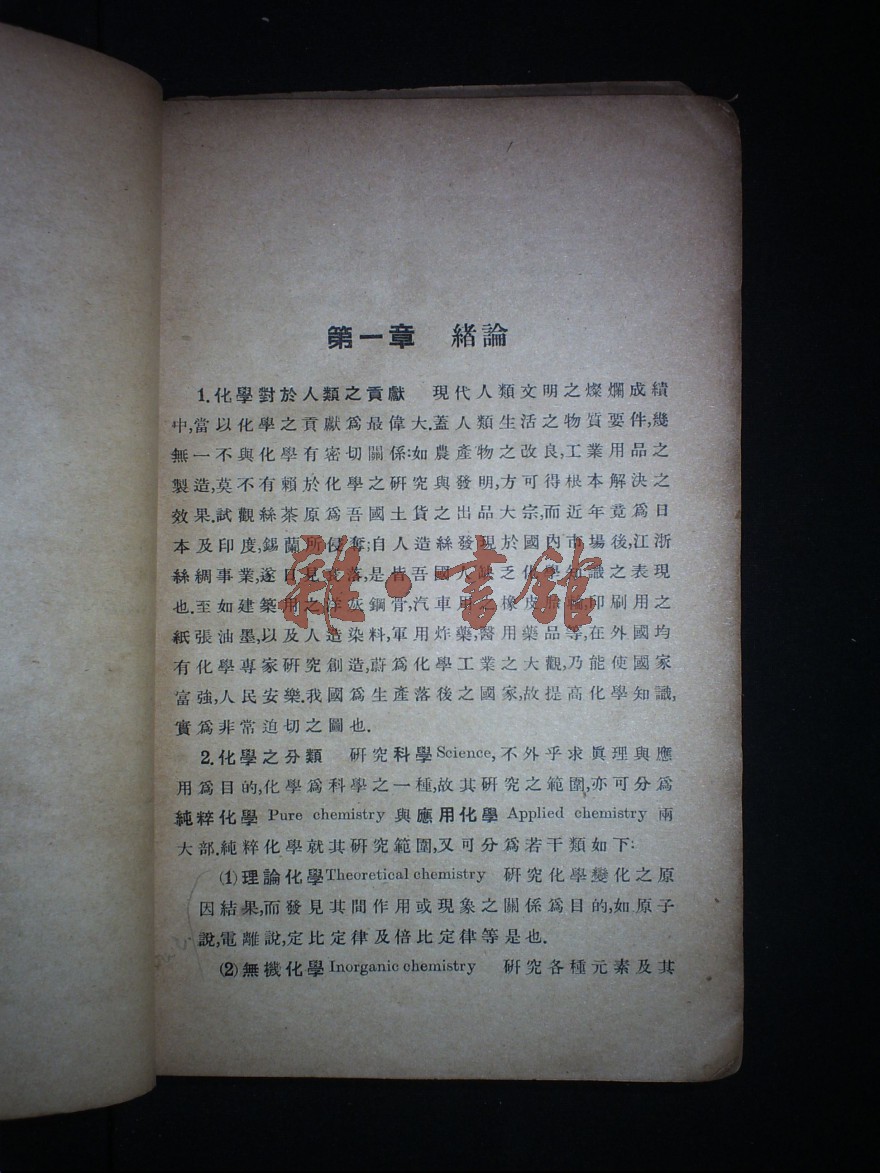 第一章 緒論
1.化學對於人類之貢獻 現代人類文明之燦爛成績
中,當以化學之貢獻爲最偉大.蓋人類生活之物質要件,幾
無一不與化學有密切關係:如農產物之改良,工業用品之
製造,莫不有賴於化學之硏究與發明,方可得根本解決之
效果.試觀絲茶原爲吾國土貨之出品大宗,而近年竟爲日
本及印度,錫蘭所侵奪;自人造絲發現於國內市場後,江浙
絲綢事業,遂日見衰落,是皆吾國人缺乏化學知識之表現
也.至如建築用之洋灰鋼骨,汽車用之橡皮胎輪,印刷用之
紙張油墨,以及人造染料,軍用炸藥,醫用藥品等,在外國均
有化學專家硏究創造,蔚爲化學工業之大觀,乃能使國家
富強,人民安樂.我國爲生產落後之國家,故提高化學知識,
實爲非常迫切之圖也.
2.化學之分類 硏究科學Science,不外乎求眞理與應
用爲目的,化學爲科學之一種,故其硏究之範圍,亦可分爲
純粹化學 Pure chemistry 與應用化學 Applied chemistry 兩
大部.純粹化學就其硏究範圍,又可分爲若干類如下:
(1)理論化學Theoretical chemistry 硏究化學變化之原
因結果,而發見其間作用或現象之關係爲目的,如原子
說,電離說,定比定律及倍比定律等是也.
(2)無機化學Inorganic chemistry 硏究各種元素及其
雜·書館